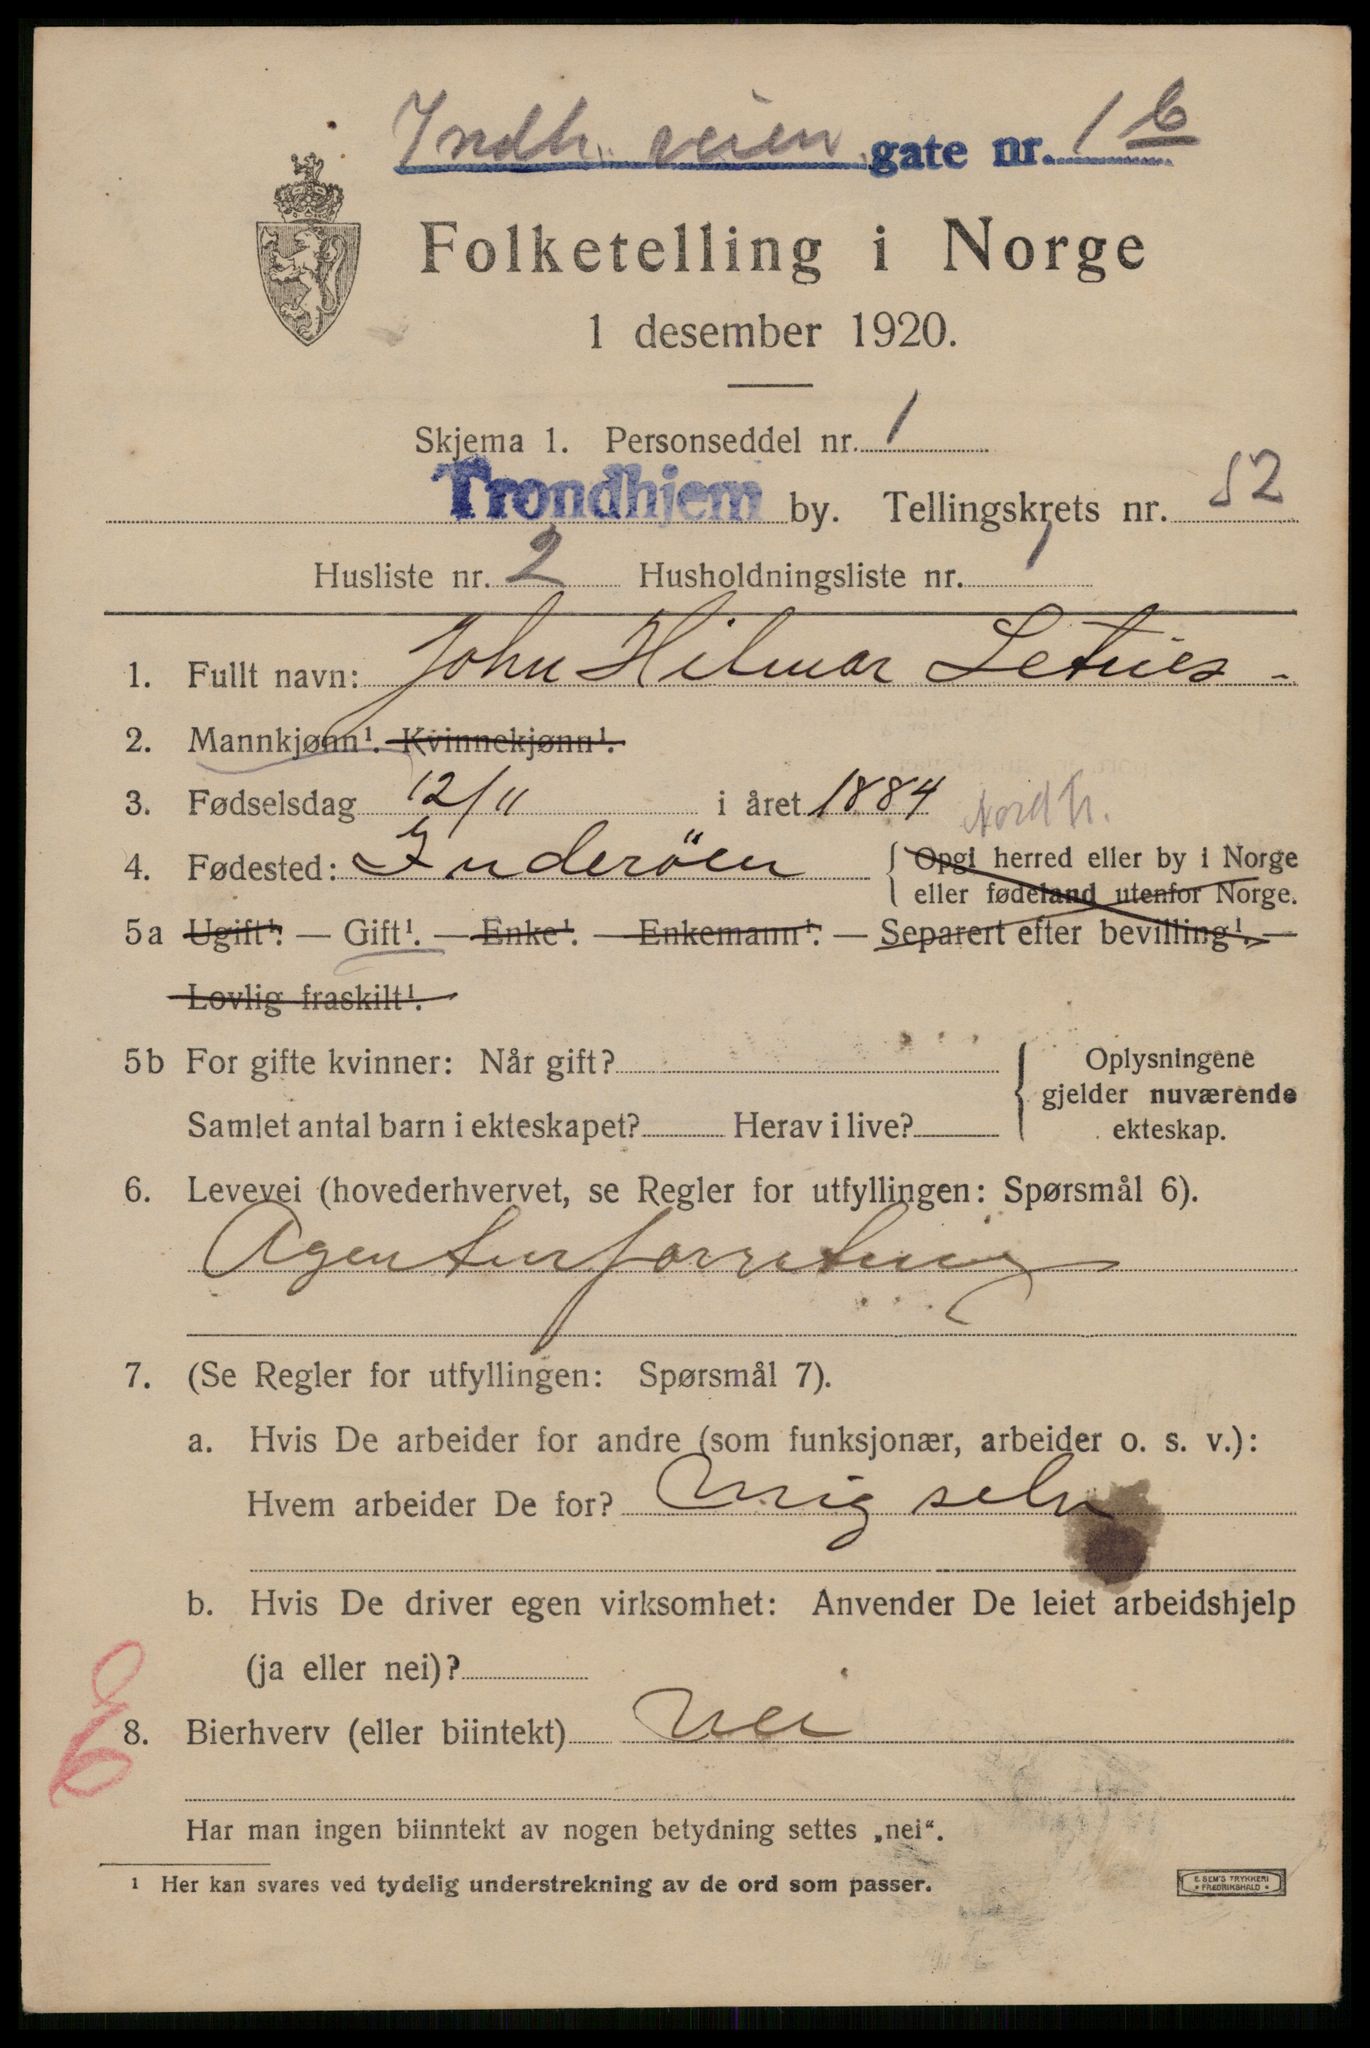 Indh. veien gate nr. 1 b
Folketelling i Norge
1 desember 1920.
Skjema 1. Personseddel nr. 1
Trondhjem by. Tellingskrets nr. 52
Husliste nr. 2 Husholdningsliste nr. 1
1. Fullt navn: John Hilmar Letnes
2. Mannkjønn¹. Kvinnekjønn¹.
3. Fødselsdag 12/11 i året 1884 Nordtr.
4. Fødested: Inderöen { Opgi herred eller by i Norge
eller fødeland utenfor Norge.
5a Ugift¹. — Gift¹. — Enke¹. — Enkemann¹. — Separert efter bevilling¹. —
Lovlig fraskilt¹.
5b For gifte kvinner: Når gift? Oplysningene
gjelder nuværende
Samlet antal barn i ekteskapet? Herav i live? ekteskap.
6. Levevei (hovederhvervet, se Regler for utfyllingen: Spørsmål 6).
Agenturforretning
7. (Se Regler for utfyllingen: Spørsmål 7).
a. Hvis De arbeider for andre (som funksjonær, arbeider o. s. v.):
Hvem arbeider De for? mig selv
b. Hvis De driver egen virksomhet: Anvender De leiet arbeidshjelp
(ja eller nei)?
8. Bierhverv (eller biintekt) nei
Har man ingen biinntekt av nogen betydning settes „nei“.
¹ Her kan svares ved tydelig understrekning av de ord som passer.
E. SEM'S TRYKKERI
FREDRIKSHALD